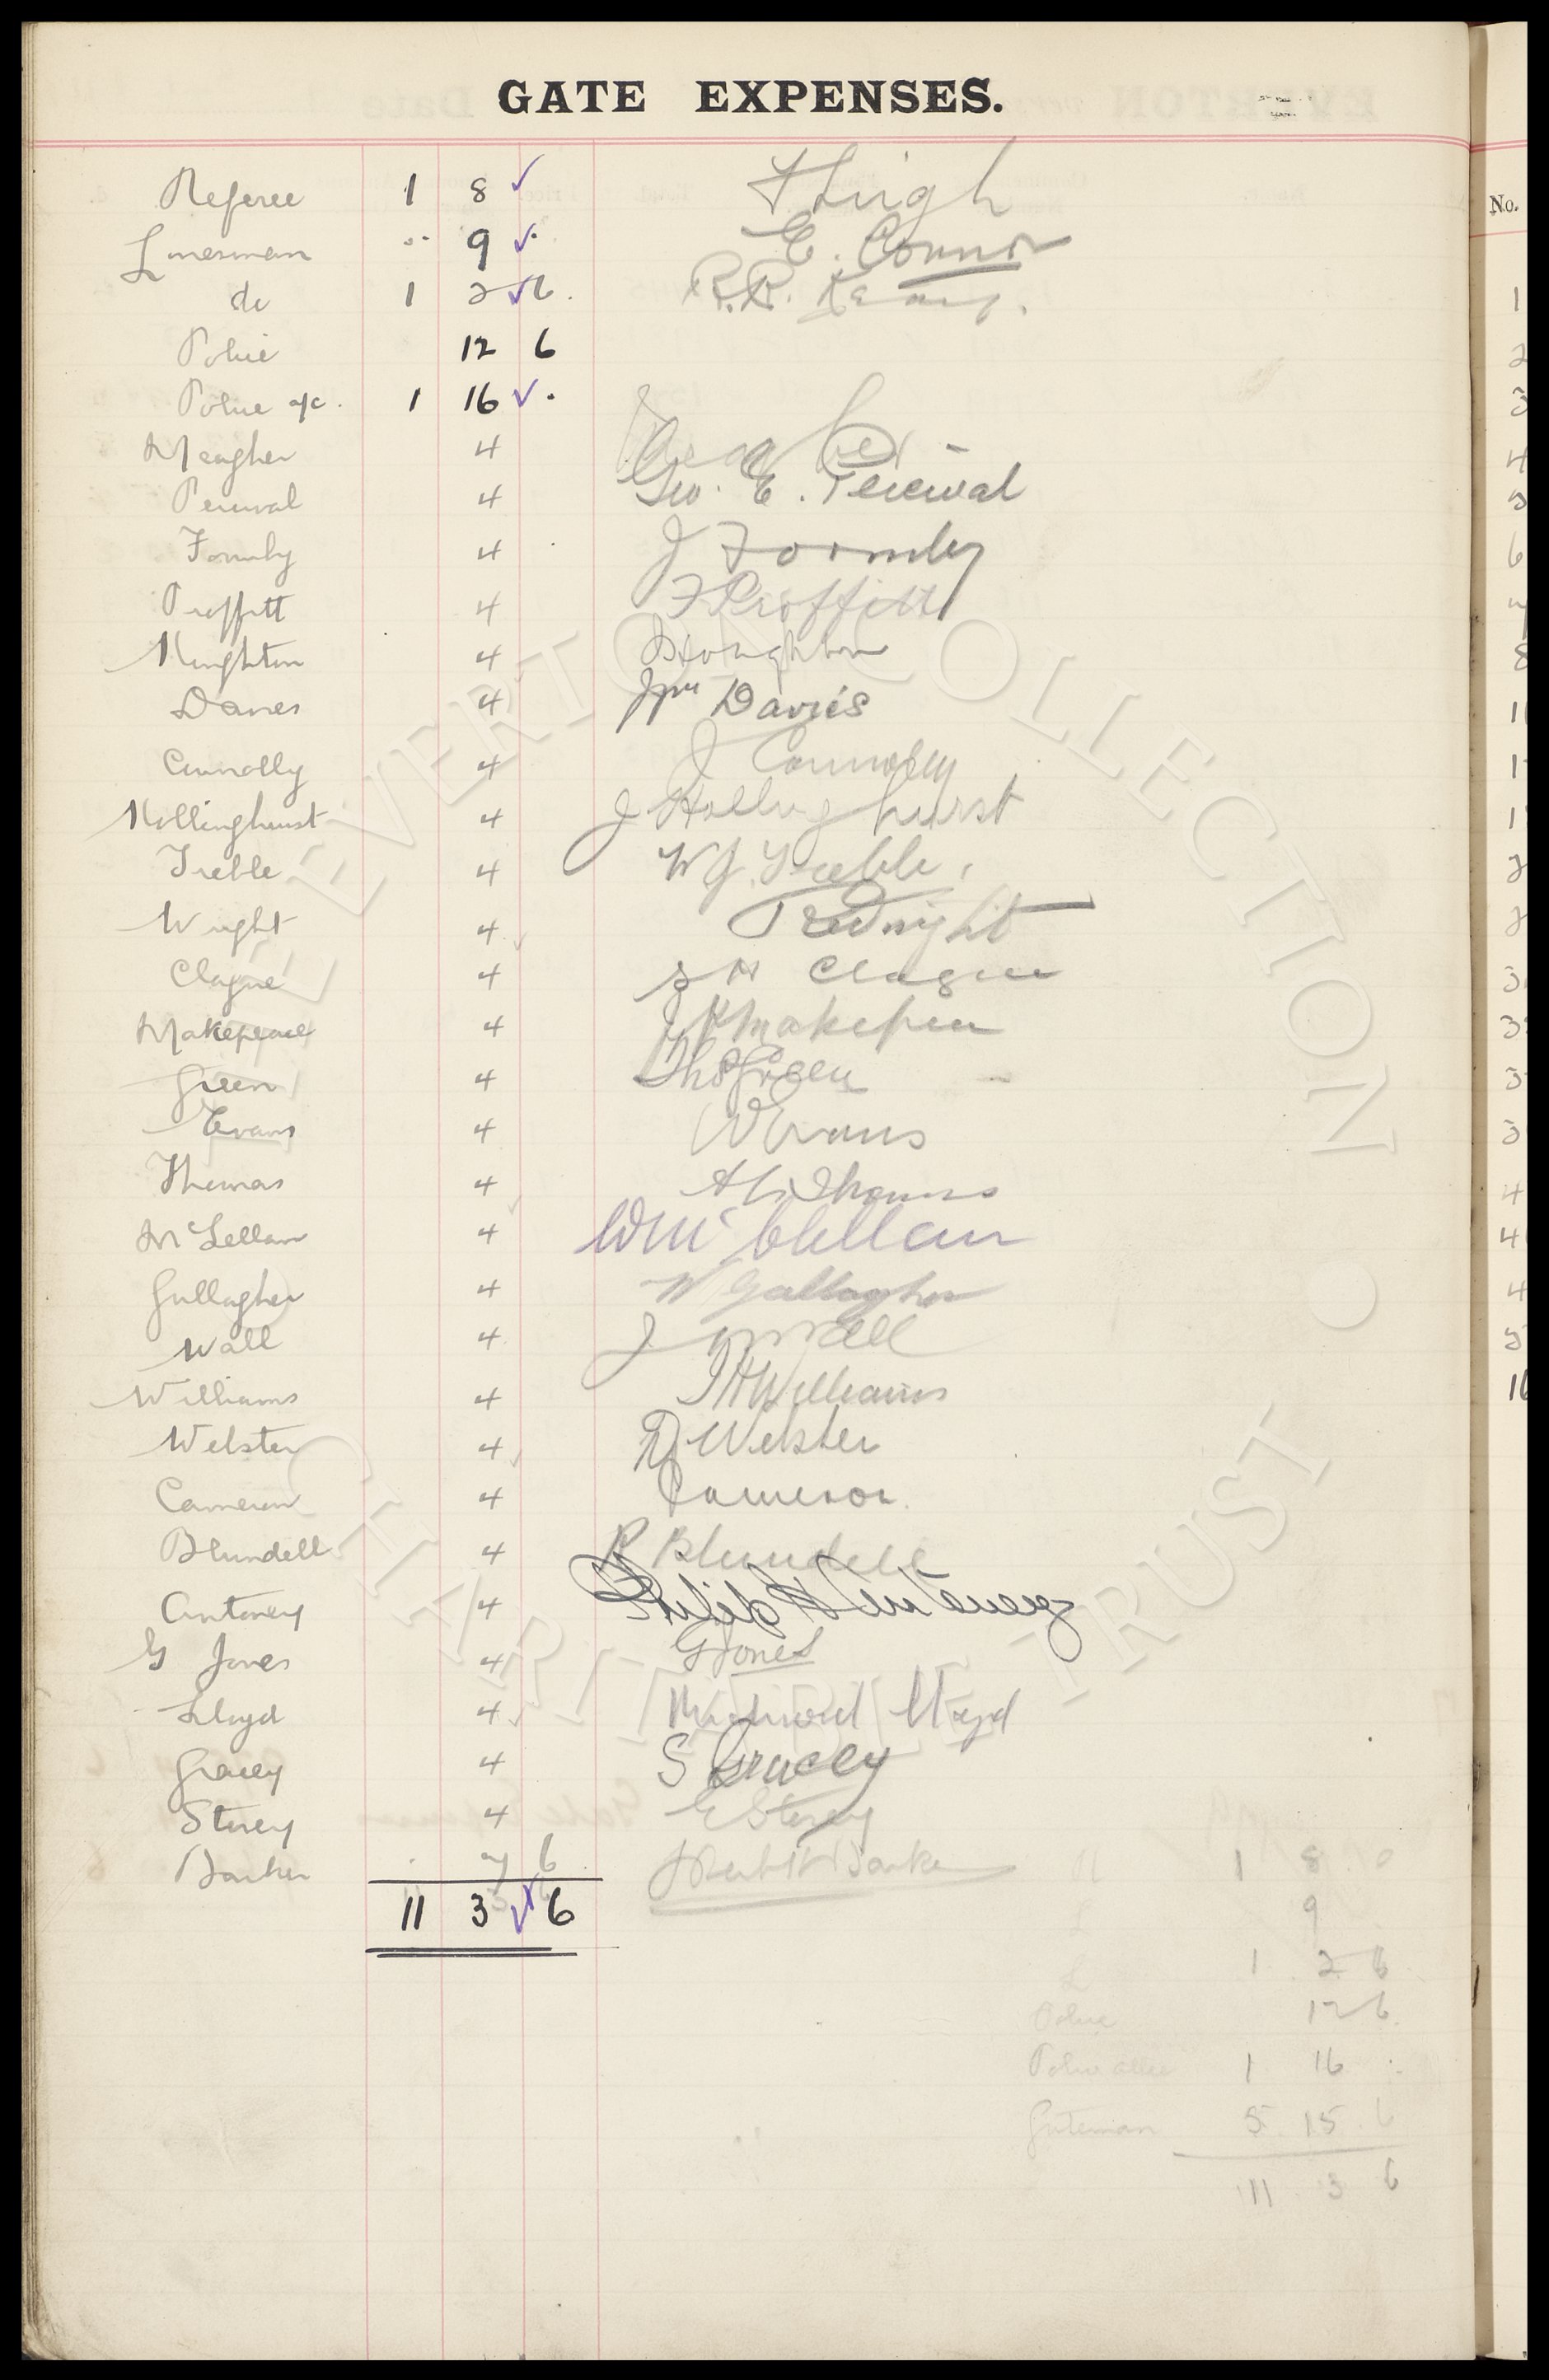 GATE EXPENSES.
Referee 1 8 ✓
Linesman 9 ✓ E. Connor
do 1 2 ✓ 6. R.R.
Police 12 6
Police a/c. 1 16 ✓ .
Meagher 4 Meagher
Percival 4 Geo. E. Percival
Formby 4 J Formby
Proffitt 4 F Proffitt
Houghton 4 Houghton
Davies 4 Davies
Connolly 4 J Connolly
Hollinghurst 4 J Hollinghurst
Treble 4 W J. Treble.
Wright 4 Fred Wright
Clague 4 J H Clague
Makepeace 4 Makepeace
Green 4 Thos Green
Evans 4 W Evans
Thomas 4 Thomas
McLellan 4 W McClellan
Gallagher 4 W Gallagher
Wall 4 J Wall
Williams 4 J H Williams
Webster 4 Webster
Cameron 4 Cameron
Blundell 4 R Blundell
Anteney 4 Philip H Anteney
G Jones 4 G Jones
Lloyd 4 Richard Lloyd
Gracey 4 S Gracey
Storey 4 E Storey
Barker 7 6 Barker
11 3 ✓ 6
R 1 8 0
L 9
L 1 2 6
Police 12 6
Police allce 1 16 .
Gateman 5 15 6
11 3 6
EVERTON COLLECTION CHARITABLE TRUST
No.